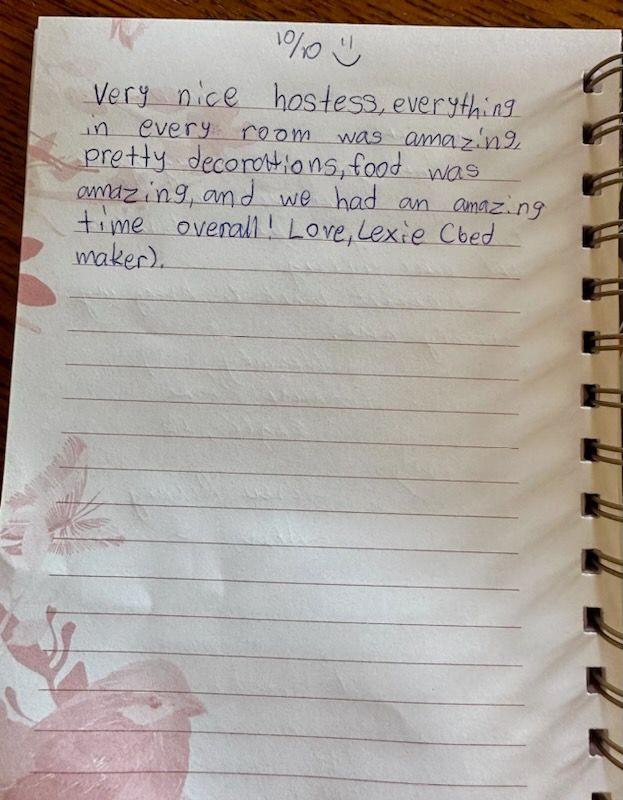 10/10 :)
Very nice hostess, everything
in every room was amazing,
pretty decorations, food was
amazing, and we had an amazing
time overall! Love, Lexie (bed
maker).